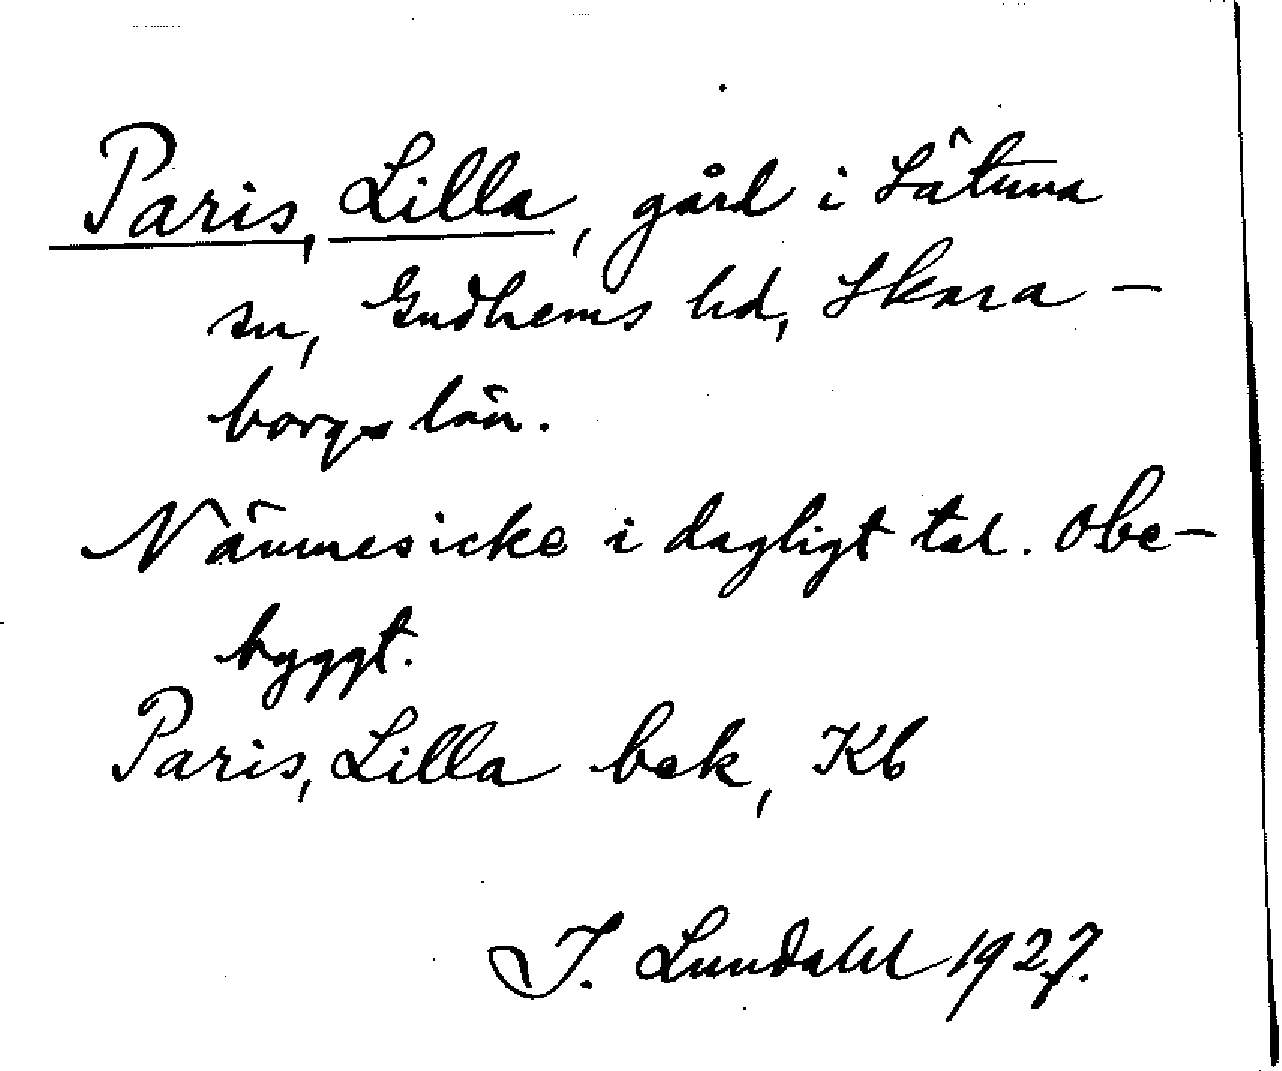 Paris, Lilla, gård i Sätuna
sn, Gudhems hd, Skara-
borgs län.
Nännes icke i dagligt tal. Obe-
byggt.
Paris, Lilla bek, Kb
I. Lundahl 1927.